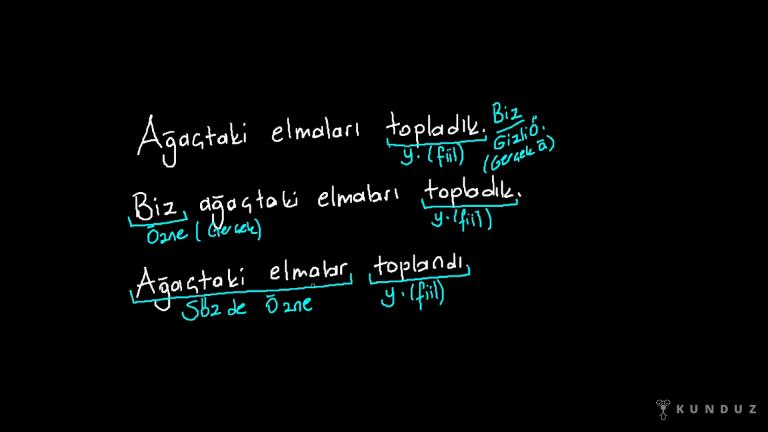 Ağaçtaki elmaları topladık. Biz
y. (fiil) Gizli Ö.
(Gerçek Ö)
Biz ağaçtaki elmaları topladık.
Özne (Gerçek) y. (fiil)
Ağaçtaki elmalar toplandı.
Sözde Özne y. (fiil)
KUNDUZ